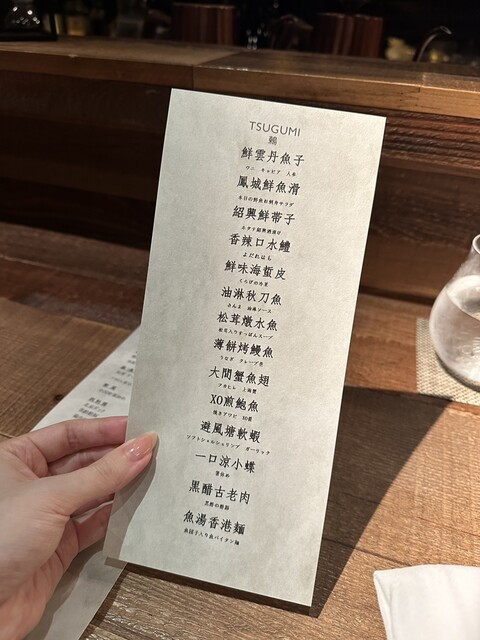 TSUGUMI
鶫
鮮雲丹魚子
ウニ キャビア 人参
鳳城鮮魚滑
本日の鮮魚お刺身サラダ
紹興鮮帯子
ホタテ紹興酒漬け
香辣口水鱧
よだれはも
鮮味海蜇皮
くらげの冷菜
油淋秋刀魚
さんま 油淋ソース
松茸燉水魚
松茸入りすっぽんスープ
薄餅烤鰻魚
うなぎ クレープ包
大間蟹魚翅
フカヒレ 上海蟹
XO煎鮑魚
焼きアワビ XO醤
避風塘軟蝦
ソフトシェルシュリンプ ガーリック
一口涼小蝶
箸休め
黒醋古老肉
黒酢の酢豚
魚湯香港麺
魚団子入り魚パイタン麺